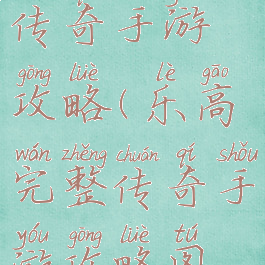 传奇手游
gōng lüè lè gāo
攻略(乐高
wán zhěng chuán qí shǒu
完整传奇手
yóu gōng lüè tú
游攻略图